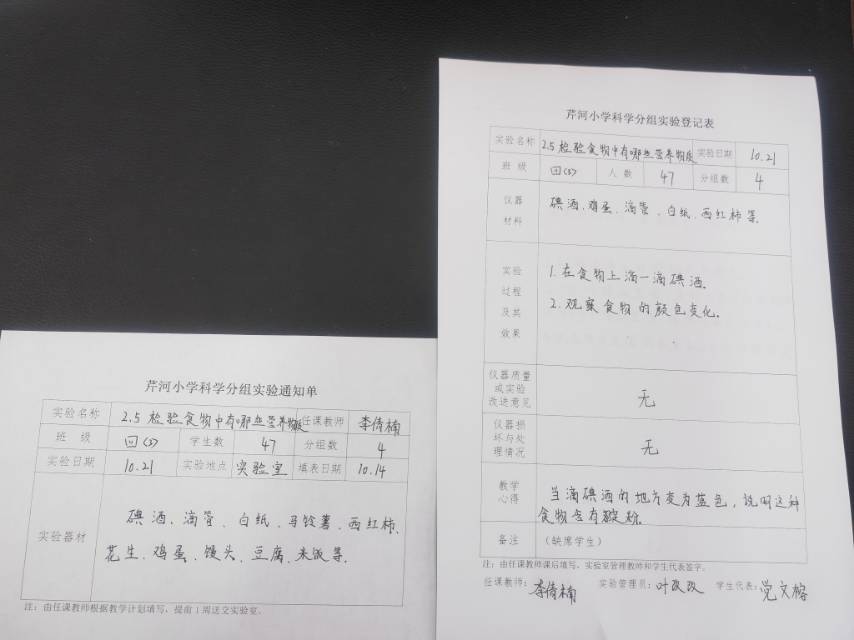 芹河小学科学分组实验通知单
实验名称 2.5 检验食物中有哪些营养物质 任课教师 李倩楠
班 级 四(5) 学生数 47 分组数 4
实验日期 10.21 实验地点 实验室 填表日期 10.14
实验器材
碘酒、滴管、白纸、马铃薯、西红柿、
花生、鸡蛋、馒头、豆腐、米饭等.
注：由任课教师根据教学计划填写，提前1周送交实验室。
芹河小学科学分组实验登记表
实验名称 2.5 检验食物中有哪些营养物质 实验日期 10.21
班 级 四(5) 人 数 47 分组数 4
仪器
材料
碘酒、鸡蛋、滴管、白纸、西红柿等.
实验
过程
及其
效果
1. 在食物上滴一滴碘酒.
2. 观察食物的颜色变化.
仪器质量
或实验
改进意见
无
仪器损
坏与处
理情况
无
教学
心得
当滴碘酒的地方变为蓝色，说明这种
食物含有淀粉.
备注 （缺席学生）
注：由任课教师课后填写，实验室管理教师和学生代表签字。
任课教师：李倩楠 实验管理员：叶改改 学生代表：党文榕